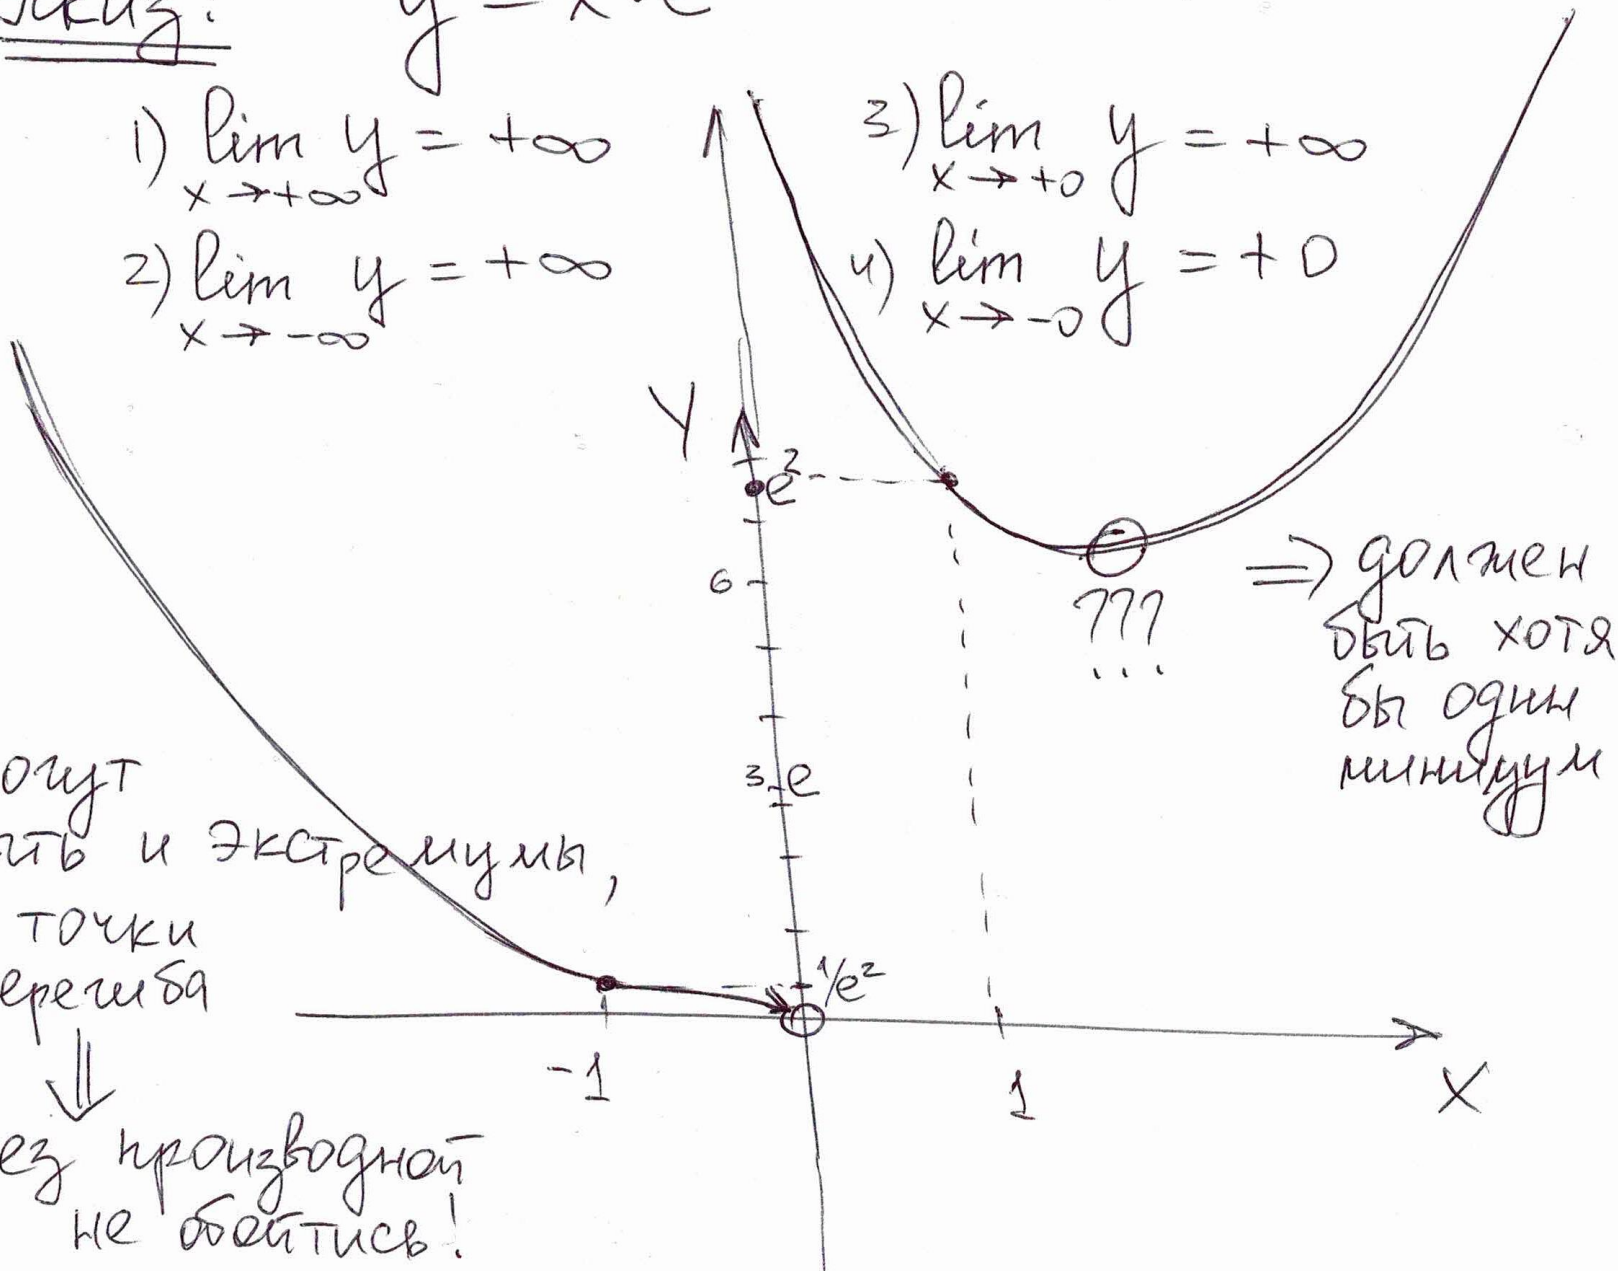 y = x
1) lim y = +∞
x→+∞
2) lim y = +∞
x→-∞
3) lim y = +∞
x→+0
4) lim y = +0
x→-0
Y
e²
6
3
e
1/e²
-1
1
X
???
...
⇒ должен
быть хотя
бы один
минимум
огут
ить и экстремумы,
точки
ерегиба
⇓
ез производной
не обойтись!